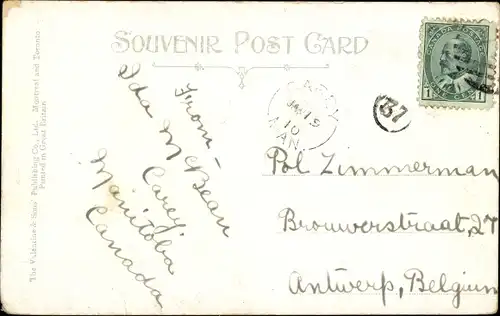 SOUVENIR POST CARD
The Valentine & Sons' Publishing Co., Ltd., Montreal and Toronto
Printed in Great Britain
From-
Ida McBean
Carey,
Manitoba
Canada
CANADA POSTAGE
1 1
JA 19
10
MAN
37
Pol Zimmerman
Brouwerstraat, 27
Antwerp, Belgium